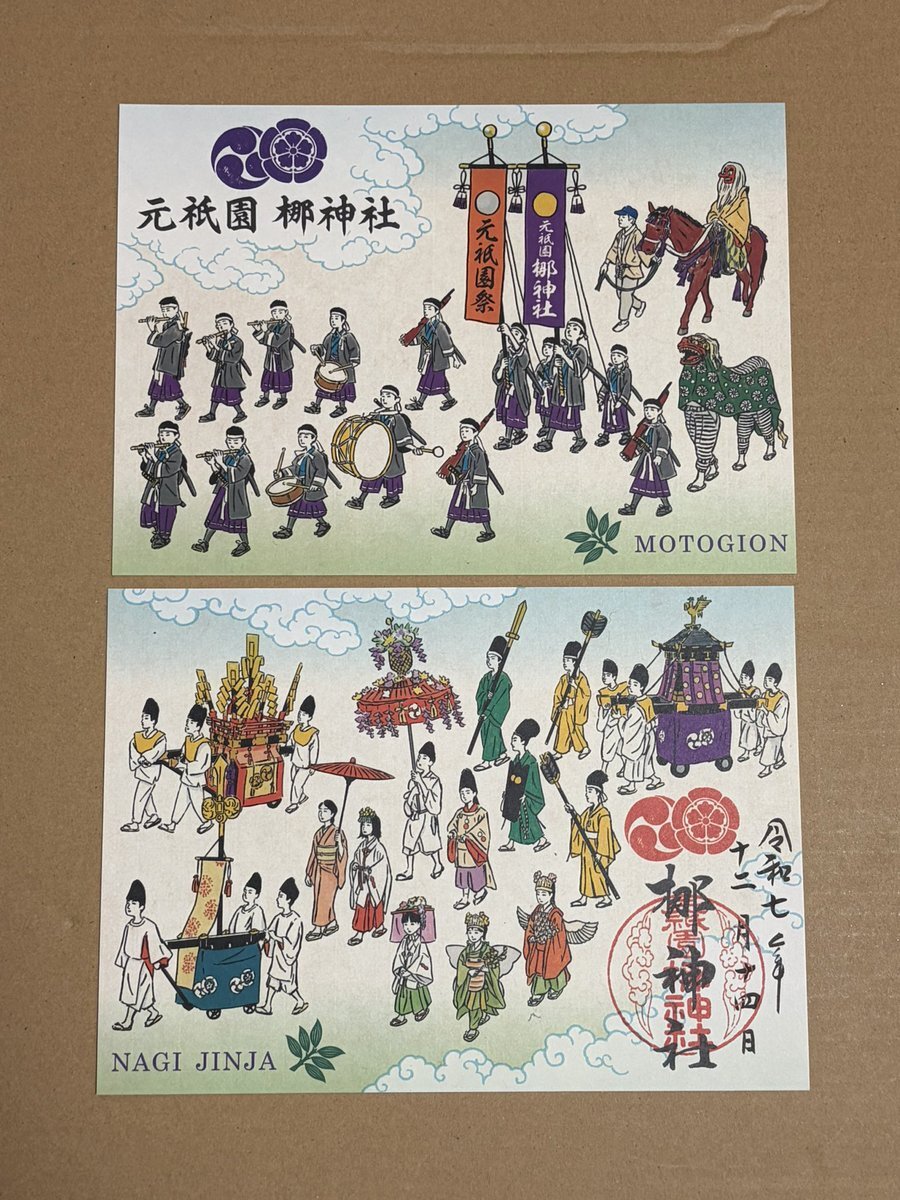 元祇園 梛神社
元祇園祭
元祇園 梛神社
MOTOGION
令和七年
十二月十四日
梛神社
NAGI JINJA